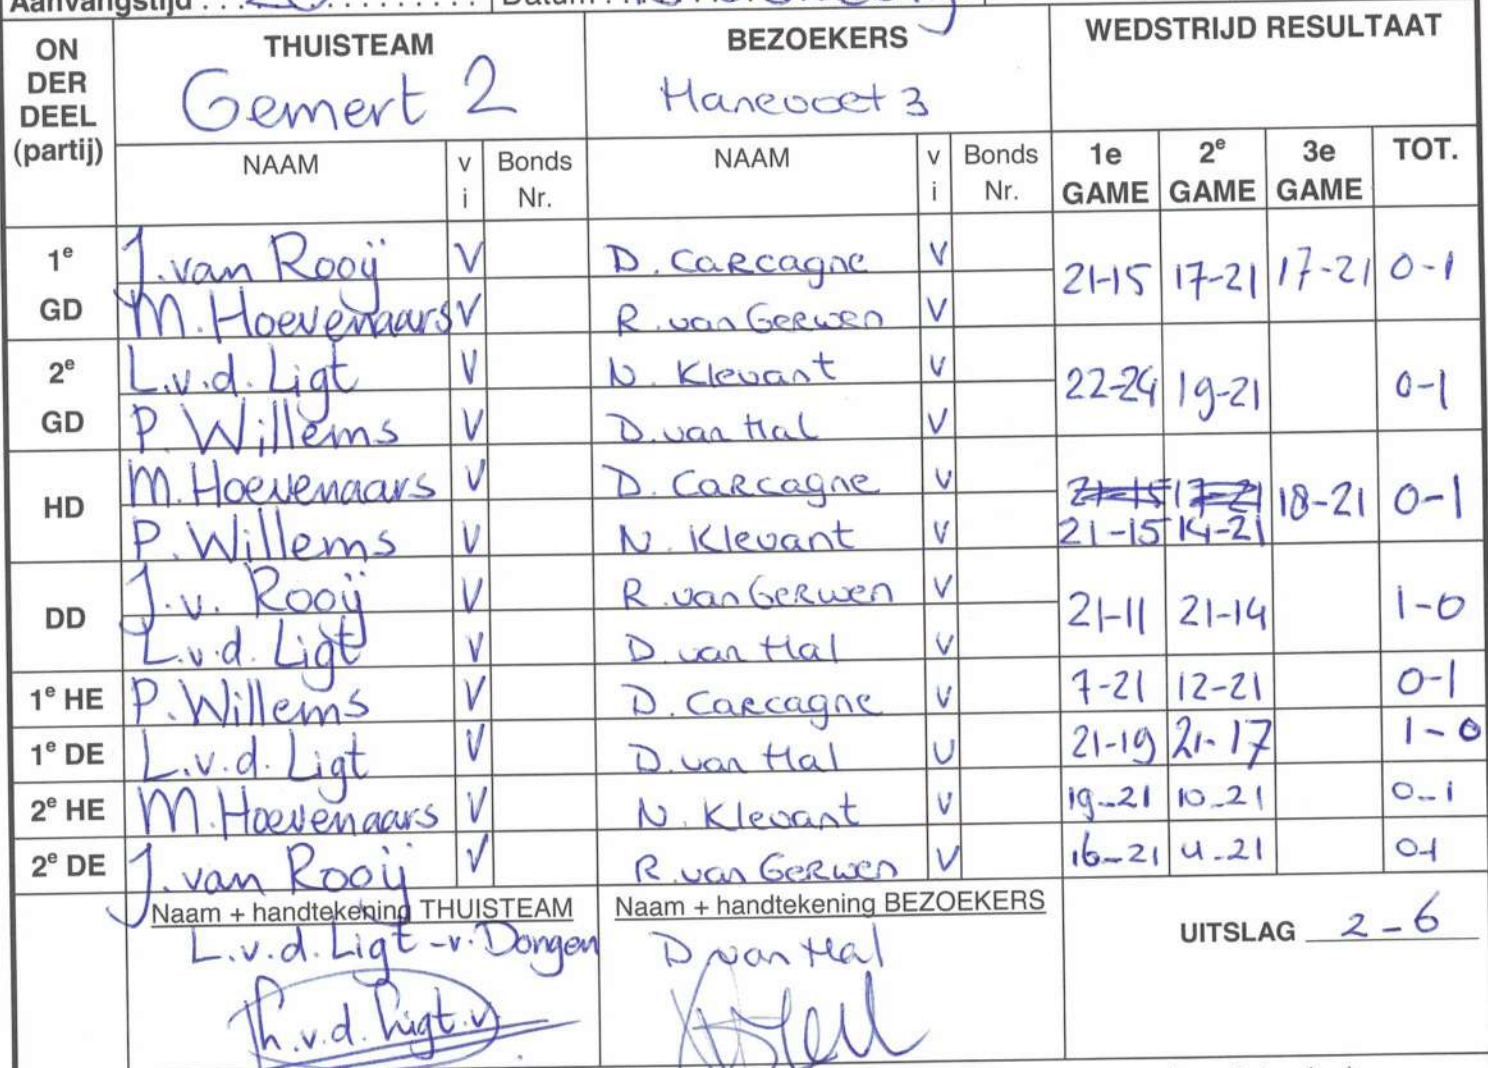 Aanvangstijd
Datum
ON DER DEEL (partij)
THUISTEAM
Gemert 2
BEZOEKERS
Hanevoet 3
WEDSTRIJD RESULTAAT
NAAM v i Bonds Nr. NAAM v i Bonds Nr. 1e GAME 2e GAME 3e GAME TOT.
1e GD J. van Rooij V D. Carcagne V 21-15 17-21 17-21 0-1
M. Hoevenaars V R. van Gerwen V
2e GD L.v.d. Ligt V N. Klevant V 22-24 19-21 0-1
P. Willems V D. van Hal V
HD M. Hoevenaars V D. Carcagne V 21-15 17-21 18-21 0-1
P. Willems V N. Klevant V 21-15 14-21
DD J. v. Rooij V R. van Gerwen V 21-11 21-14 1-0
L.v.d. Ligt V D. van Hal V
1e HE P. Willems V D. Carcagne V 7-21 12-21 0-1
1e DE L.v.d. Ligt V D. van Hal V 21-19 21-17 1-0
2e HE M. Hoevenaars V N. Klevant V 19-21 10-21 0-1
2e DE J. van Rooij V R. van Gerwen V 16-21 4-21 0-1
Naam + handtekening THUISTEAM Naam + handtekening BEZOEKERS
L.v.d. Ligt-v. Dongen D van Hal
UITSLAG 2-6
Th.v.d. Ligt.v